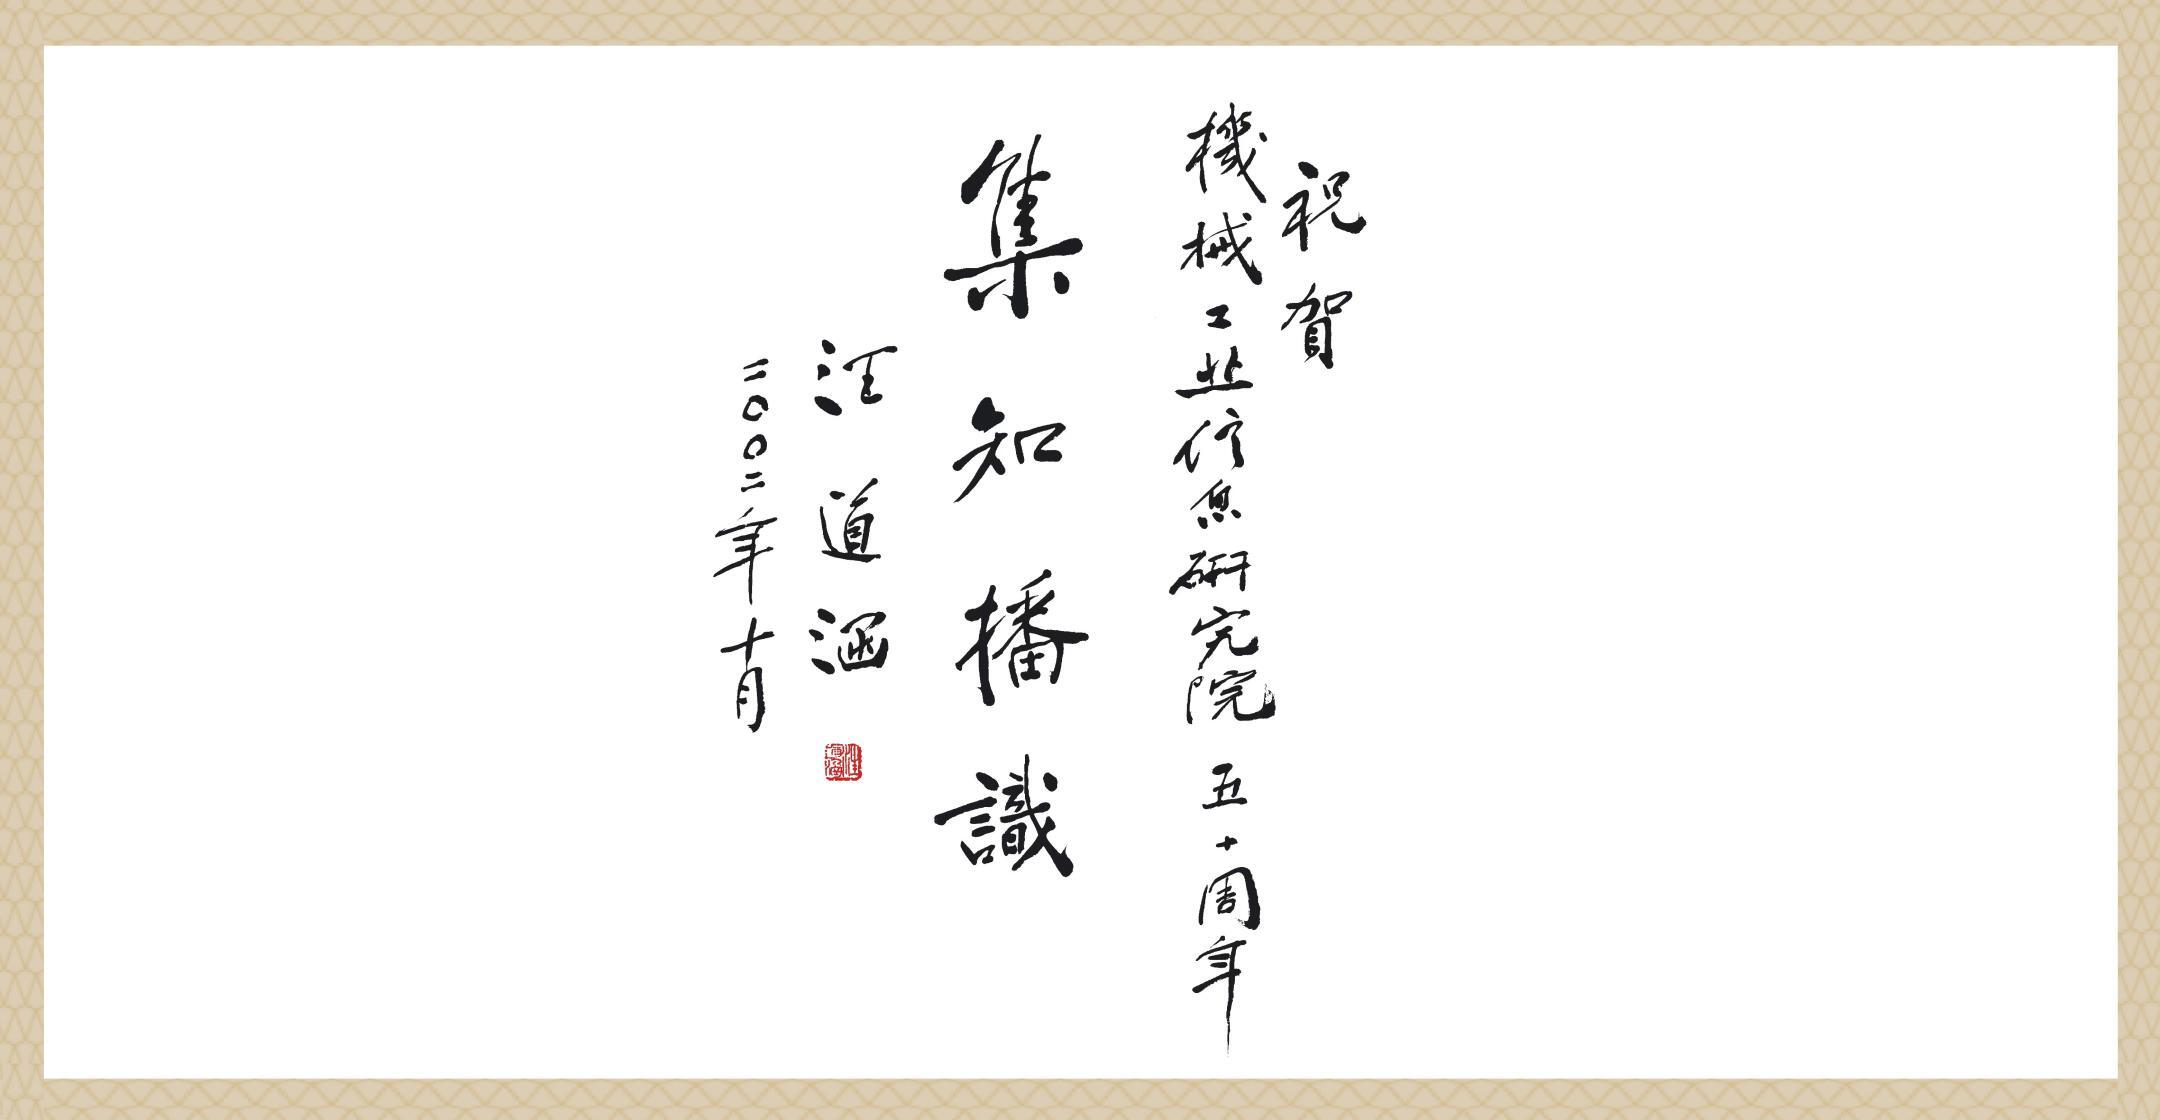 祝賀
機械工业信息研究院五十周年
集知播識
汪道涵
二〇〇二年十月